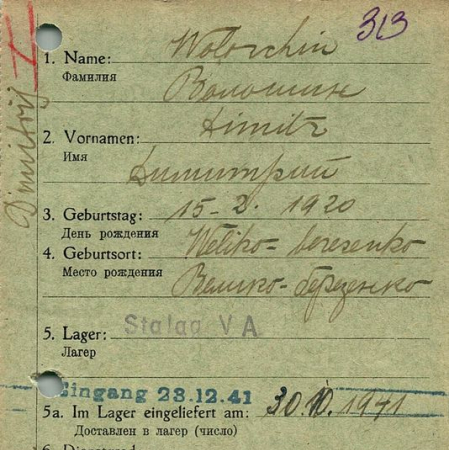 313
1. Name: Woloschin
Фамилия Волошин
2. Vornamen: Dimitr
Имя Димитрий
Dmitrij
3. Geburtstag: 15-2. 1920
День рождения
4. Geburtsort: Weliko-beresenko
Место рождения Велико-березенко
5. Lager: Stalag VA
Лагер
Eingang 23.12.41
5a. Im Lager eingeliefert am: 30.10.1941
Доставлен в лагер (число)